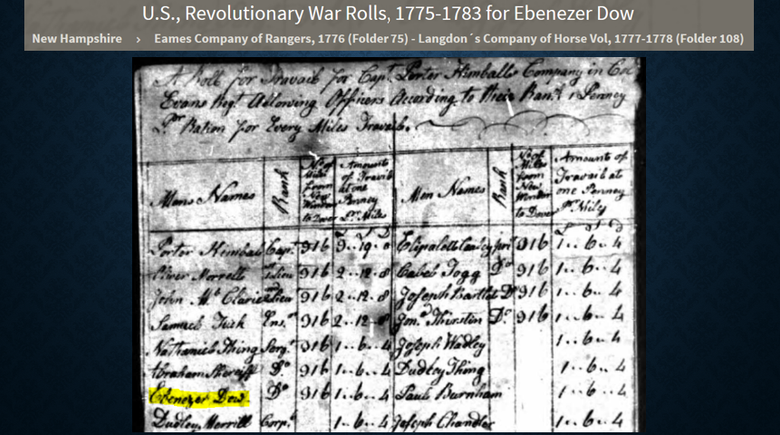 U.S., Revolutionary War Rolls, 1775-1783 for Ebenezer Dow
New Hampshire › Eames Company of Rangers, 1776 (Folder 75) - Langdon´s Company of Horse Vol, 1777-1778 (Folder 108)
A Roll for Travail for Capt. Porter Kimballs Company in Col
Evans Regt. Allowing Officers According to their Rank 1 Penney
Pr. Ration for Every Miles Travail.
Mens Names Rank No. of Miles from New Windsor to Dover Amounts of Travail at one Penney Pr. Miles Men Names Rank No. of Miles from New Windsor to Dover Amounts of Travail at one Penney Pr. Miles
Porter Kimball Capt. 316 3..19..0 316 1..6..4
Morrell Lieu 316 2..12..8 Caleb Do 316 1..6..4
John Mc Lieu 316 2..12..8 Joseph Bartlet Do 316 1..6..4
Samuel Ens. 316 2..12..8 Jon. Thirstin Do. 316 1..6..4
Nathaniel Thing Serg. 316 1..6..4 Joseph Wadley 1..6..4
Abraham Do 316 1..6..4 Dudley Thing 1..6..4
Ebenezer Dow Do 316 1..6..4 Paul Burnham 1..6..4
Dudley Merrill Corp. 1..6..4 Joseph Chandler 1..6..4